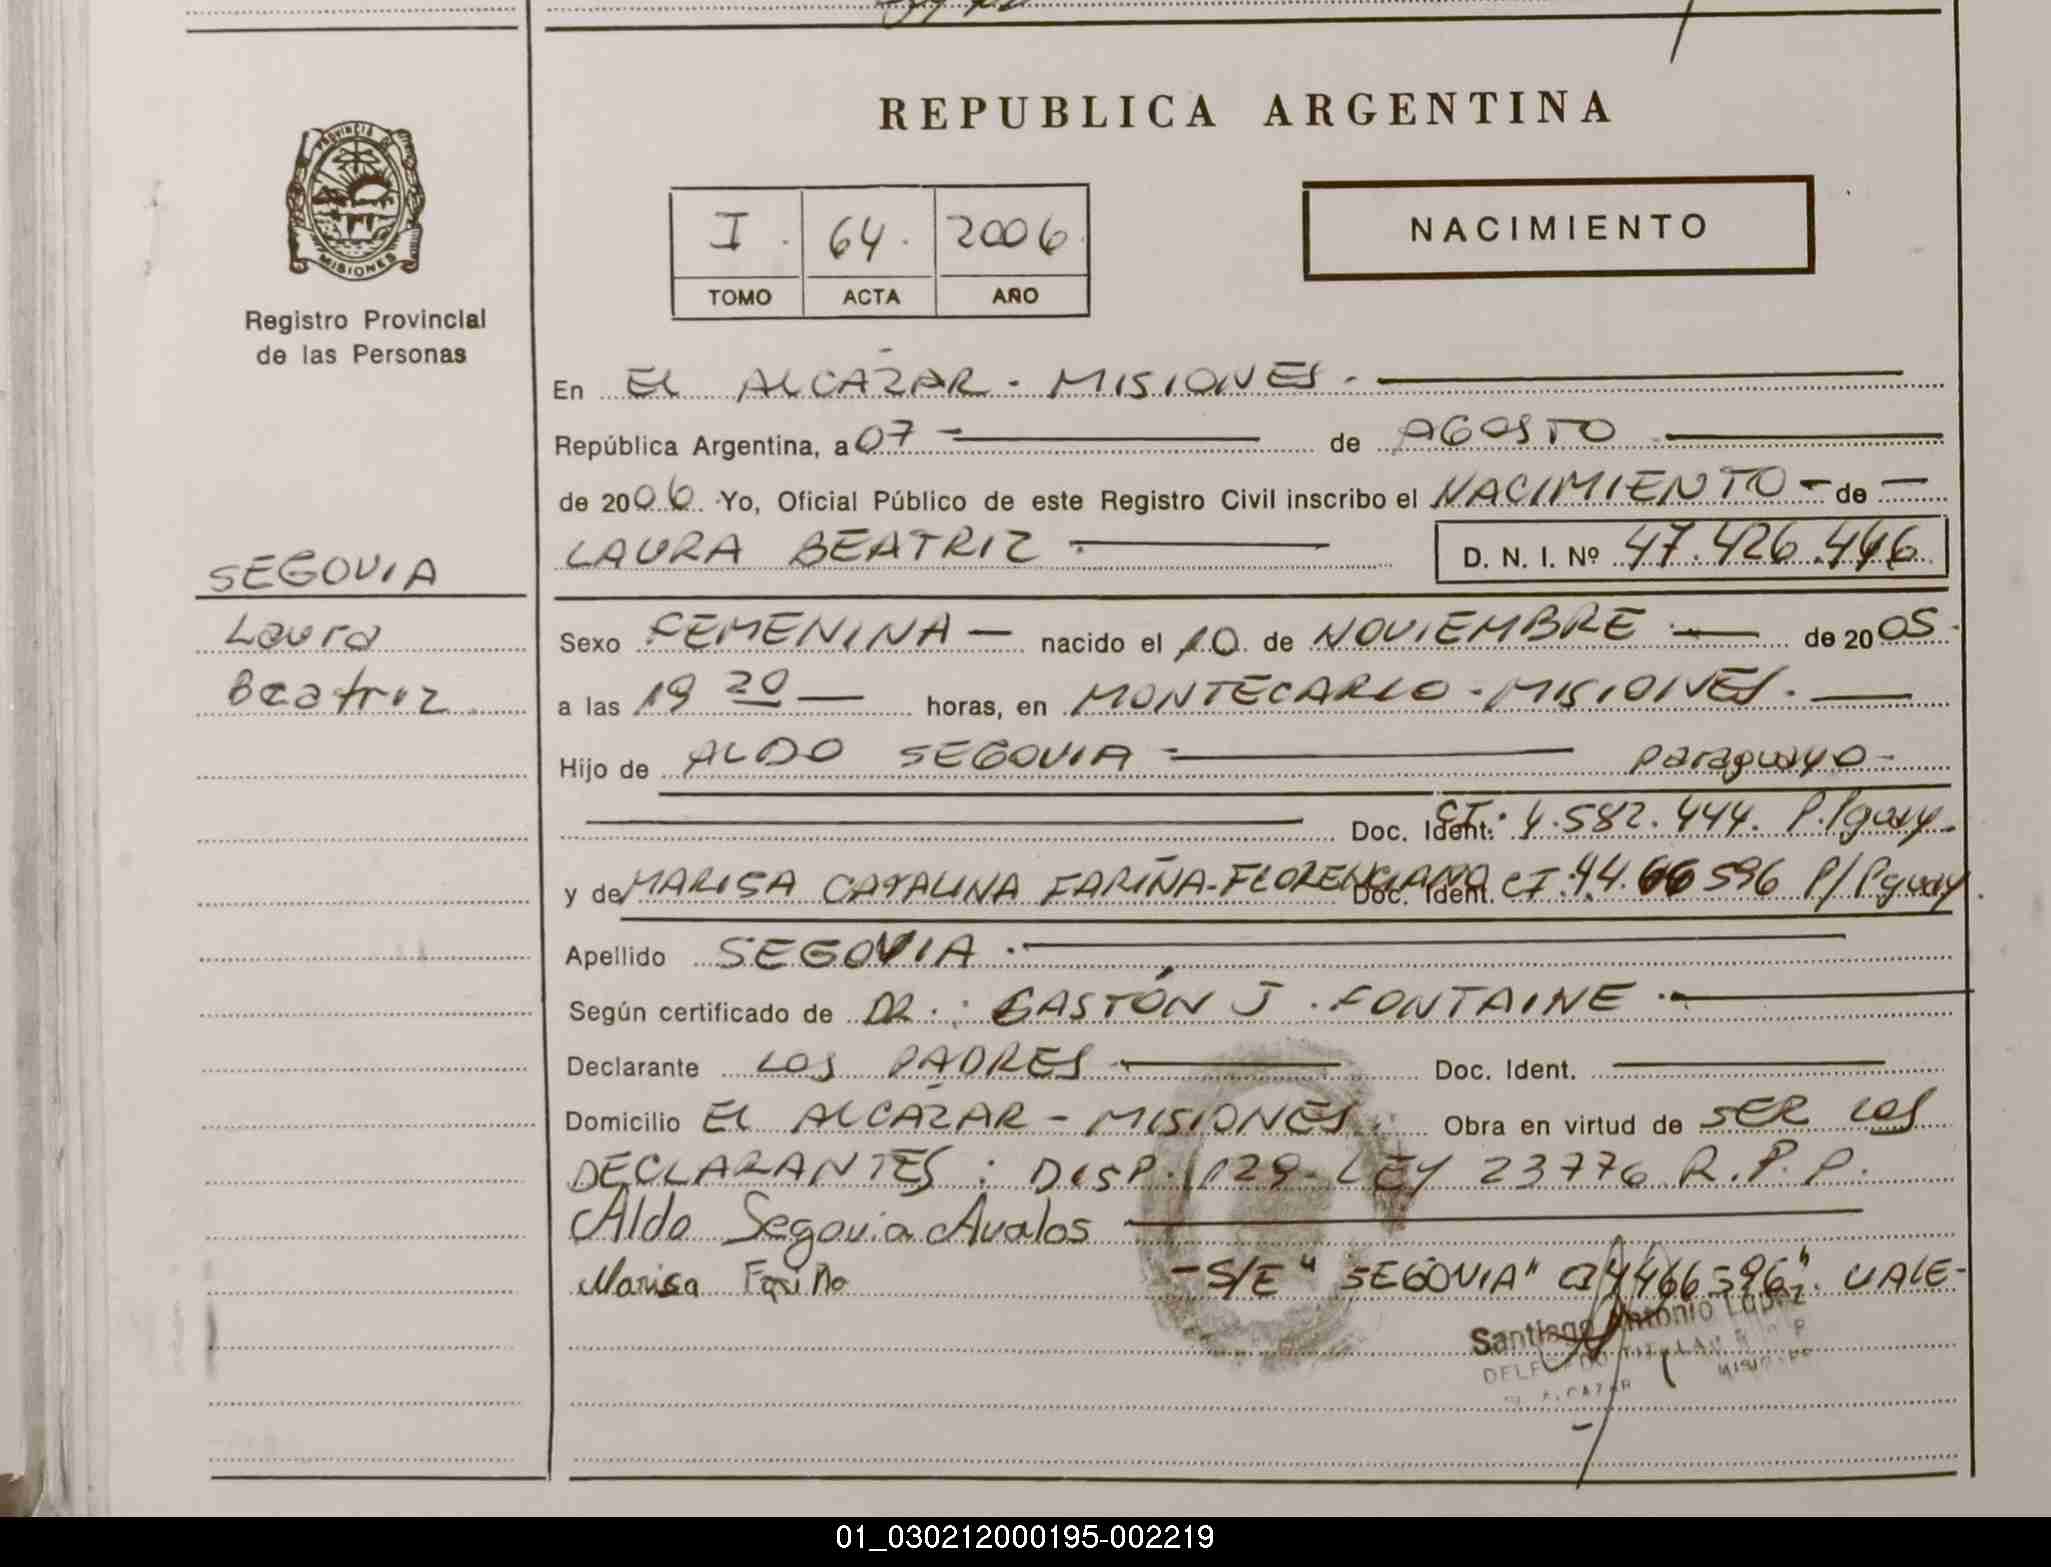 REPUBLICA ARGENTINA
PROVINCIA DE
MISIONES
Registro Provincial
de las Personas
I. 64. 2006.
TOMO ACTA AÑO
NACIMIENTO
En EL ALCAZAR - MISIONES.
República Argentina, a 07 de AGOSTO
de 2006. Yo, Oficial Público de este Registro Civil inscribo el NACIMIENTO - de -
LAURA BEATRIZ D. N. I. Nº 47.426.446
SEGOVIA
Laura
Beatriz
Sexo FEMENINA - nacido el 10 de NOVIEMBRE de 2005.
a las 19 20 horas, en MONTECARLO - MISIONES.
Hijo de ALDO SEGOVIA paraguayo -
Doc. Ident. CI: 4.582.444. P./guay.
y de MARISA CATALINA FARIÑA-FLORENCIANO Doc. Ident. CI.4.466596 P/Pguay
Apellido SEGOVIA.
Según certificado de DR.: GASTÓN J. FONTAINE.
Declarante LOS PADRES Doc. Ident.
Domicilio EL ALCAZAR - MISIONES. Obra en virtud de SER LOS
DECLARANTES: DISP. 129- LEY 23776 R.P.P.
Aldo Segovia Avalos
Marisa Fariña -S/E "SEGOVIA" CI 4466596". VALE-
Santiago Antonio Lopez
DELEGADO TITULAR R P P
EL ALCAZAR MISIONES
01_030212000195-002219